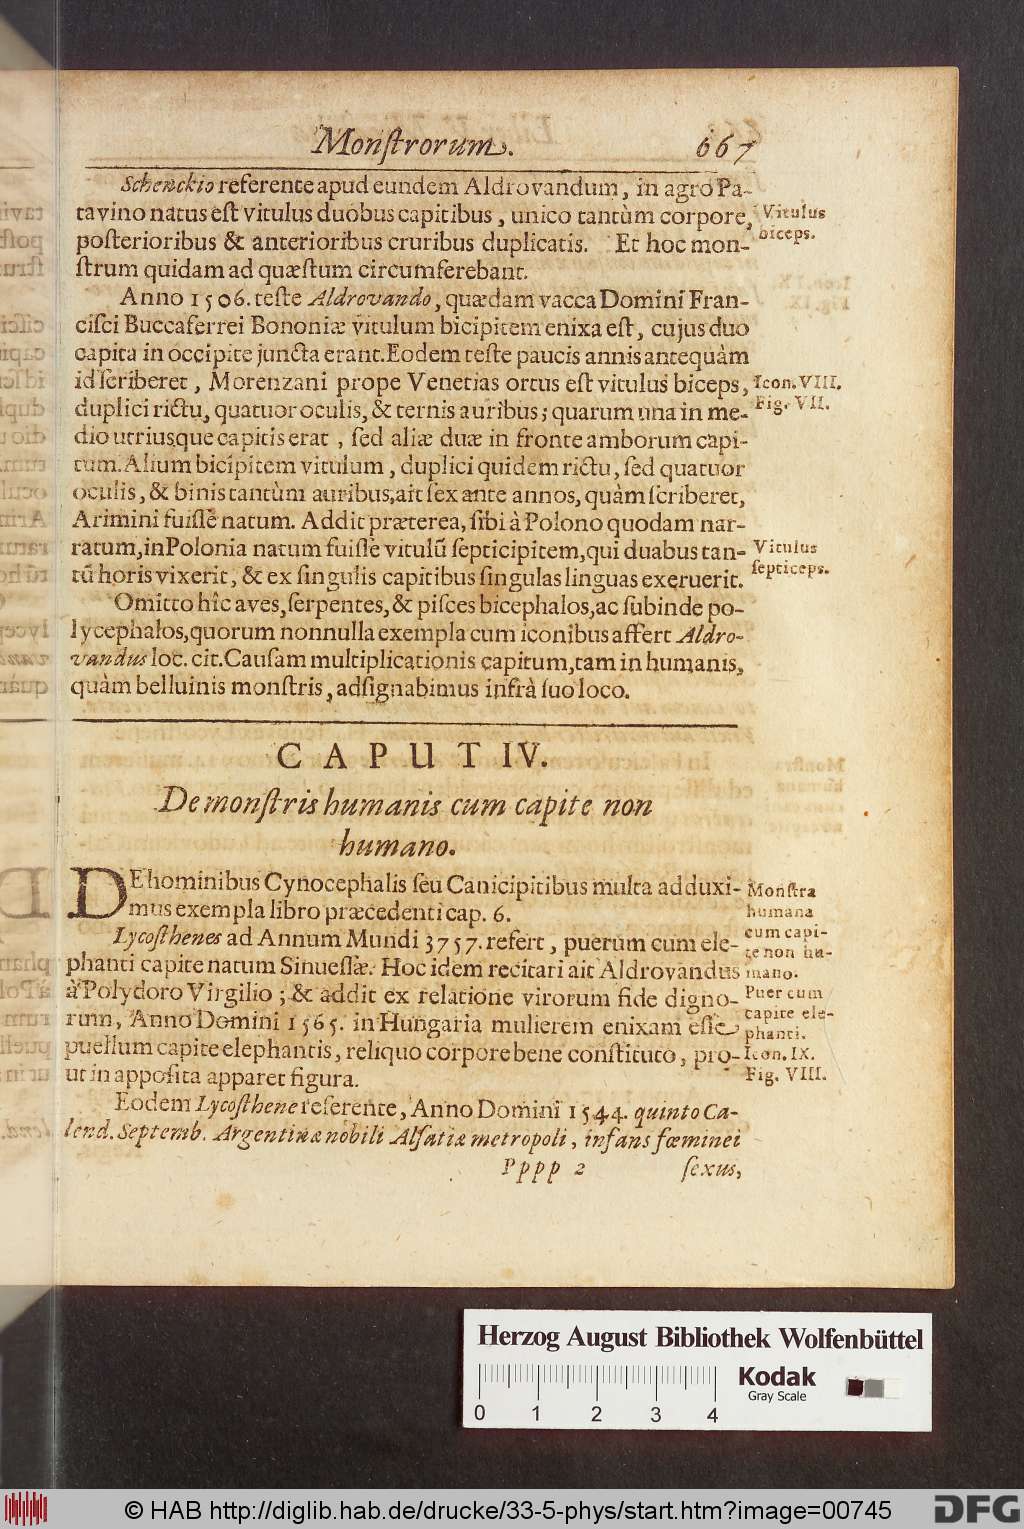 Monſtrorum. 667
Schenckio referente apud eundem Aldrovandum, in agro Pa-
tavino natus eſt vitulus duobus capitibus, unico tantùm corpore,
poſterioribus & anterioribus cruribus duplicatis. Et hoc mon-
ſtrum quidam ad quæſtum circumferebant.
Vitulus
biceps.
Anno 1506. teſte Aldrovando, quædam vacca Domini Fran-
ciſci Buccaferrei Bononiæ vitulum bicipitem enixa eſt, cujus duo
capita in occipite juncta erant. Eodem teſte paucis annis antequàm
id ſcriberet, Morenzani prope Venetias ortus eſt vitulus biceps,
duplici rictu, quatuor oculis, & ternis auribus; quarum una in me-
dio utriusque capitis erat, ſed aliæ duæ in fronte amborum capi-
tum. Alium bicipitem vitulum, duplici quidem rictu, ſed quatuor
oculis, & binis tantùm auribus, ait ſex ante annos, quàm ſcriberet,
Arimini fuiſſe natum. Addit præterea, ſibi à Polono quodam nar-
ratum, in Polonia natum fuiſſe vitulũ ſepticipitem, qui duabus tan-
tũ horis vixerit, & ex ſingulis capitibus ſingulas linguas exeruerit.
Icon. VIII.
Fig. VII.
Vitulus
ſepticeps.
Omitto hîc aves, ſerpentes, & piſces bicephalos, ac ſubinde po-
lycephalos, quorum nonnulla exempla cum iconibus affert Aldro-
vandus loc. cit. Cauſam multiplicationis capitum, tam in humanis,
quàm belluinis monſtris, adſignabimus infrà ſuo loco.
CAPUT IV.
De monſtris humanis cum capite non
humano.
DE hominibus Cynocephalis ſeu Canicipitibus multa adduxi-
mus exempla libro præcedenti cap. 6.
Lycoſthenes ad Annum Mundi 3757. refert, puerum cum ele-
phanti capite natum Sinueſſæ. Hoc idem recitari ait Aldrovandus
à Polydoro Virgilio; & addit ex relatione virorum fide digno-
rum, Anno Domini 1565. in Hungaria mulierem enixam eſſe
puellum capite elephantis, reliquo corpore bene conſtituto, pro-
ut in appoſita apparet figura.
Monſtra
humana
cum capi-
te non hu-
mano.
Puer cum
capite ele-
phanti.
Icon. IX.
Fig. VIII.
Eodem Lycoſthene referente, Anno Domini 1544. quinto Ca-
lend. Septemb. Argentinæ nobili Alſatiæ metropoli, infans fœminei
Pppp 2 ſexus,
Herzog August Bibliothek Wolfenbüttel
0 1 2 3 4
Kodak
Gray Scale
© HAB http://diglib.hab.de/drucke/33-5-phys/start.htm?image=00745
DFG